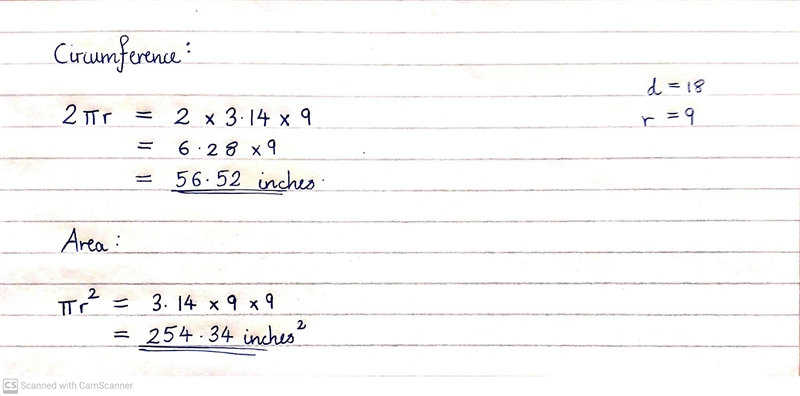 Circumference:
d = 18
2πr = 2 x 3.14 x 9
r = 9
= 6.28 x 9
= 56.52 inches.
Area:
πr² = 3.14 x 9 x 9
= 254.34 inches²
CS Scanned with CamScanner